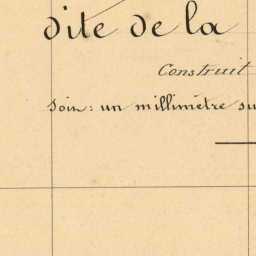 dite de la
Construit
Soin: un millimètre su